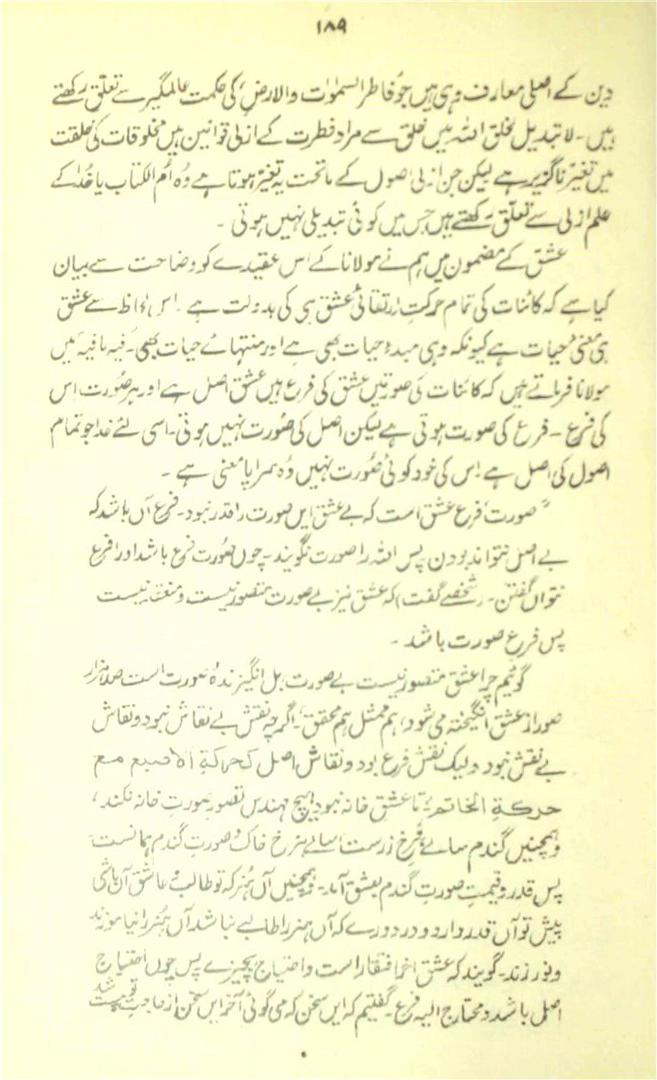 ۱۸۹
دین کے اصلی معارف وہی ہیں جو فاطر السمٰوٰت والارض کی حکمت عالمگیر سے تعلق رکھتے
ہیں۔ لا تبدیل لخلق اللہ میں خلق سے مراد فطرت کے ازلی قوانین ہیں مخلوقات کی خلقت
میں تغیر ناگزیر ہے لیکن جن ازلی اصول کے ماتحت یہ تغیر ہوتا ہے وہ ام الکتاب یا خدا کے
علم ازلی سے تعلق رکھتے ہیں جس میں کوئی تبدیلی نہیں ہوتی ۔
عشق کے مضمون میں ہم نے مولانا کے اس عقیدے کو وضاحت سے بیان
کیا ہے کہ کائنات کی تمام حرکت ارتقائی عشق ہی کی بدولت ہے ۔ اس لحاظ سے عشق
ہی معنی حیات ہے کیونکہ وہی مبدء حیات بھی ہے اور منتہائے حیات بھی۔ فیہ مافیہ میں
مولانا فرماتے ہیں کہ کائنات کی صورتیں عشق کی فرع ہیں عشق اصل ہے اور ہر صورت اس
کی فرع ۔ فرع کی صورت ہوتی ہے لیکن اصل کی صورت نہیں ہوتی۔ اسی لئے خدا جو تمام
اصول کی اصل ہے اس کی خود کوئی صورت نہیں وہ سراپا معنی ہے ۔
"صورت فرع عشق است کہ بے عشق ایں صورت را قدر نبود۔ فرع آں باشد کہ
بے اصل نتواند بودن پس اللہ را صورت نگویند۔ چوں صورت فرع باشد اورا فرع
نتواں گفتن ۔ (شخصے گفت) کہ عشق نیز بے صورت متصور نیست و منعقد نیست
پس فرع صورت باشد ۔
گوئیم چرا عشق متصور نیست بے صورت بل انگیزندہ صورت است صد ہزار
صور از عشق انگیختہ می شود، ہم ممثل ہم محقق، اگرچہ نقش بے نقاش نبود و نقاش
بے نقش نبود و لیک نقش فرع بود و نقاش اصل کحرکة الاصبع مع
حرکة الخاتم، تا عشق خانہ نبود ہیچ مہندس تصور صورت خانہ نکند،
و ہمچنیں گندم سالے بنرخ زر است سالے بنرخ خاک و صورت گندم ہمانست
پس قدر و قیمت صورت گندم بعشق آمد۔ و ہمچنیں آں ہنر کہ تو طالب و عاشق آن باشی
پیش تو آں قدر دارد و در دورے کہ آں ہنر را طالبے نباشد آں ہنر را نیاموزند
و نورزند۔ گویند کہ عشق آخر افتقار است و احتیاج بچیزے پس چوں احتیاج
اصل باشد و محتاج الیہ فرع ۔ گفتیم کہ ایں سخن کہ می گوئی آخر ایں سخن از حاجت تو ہست شد